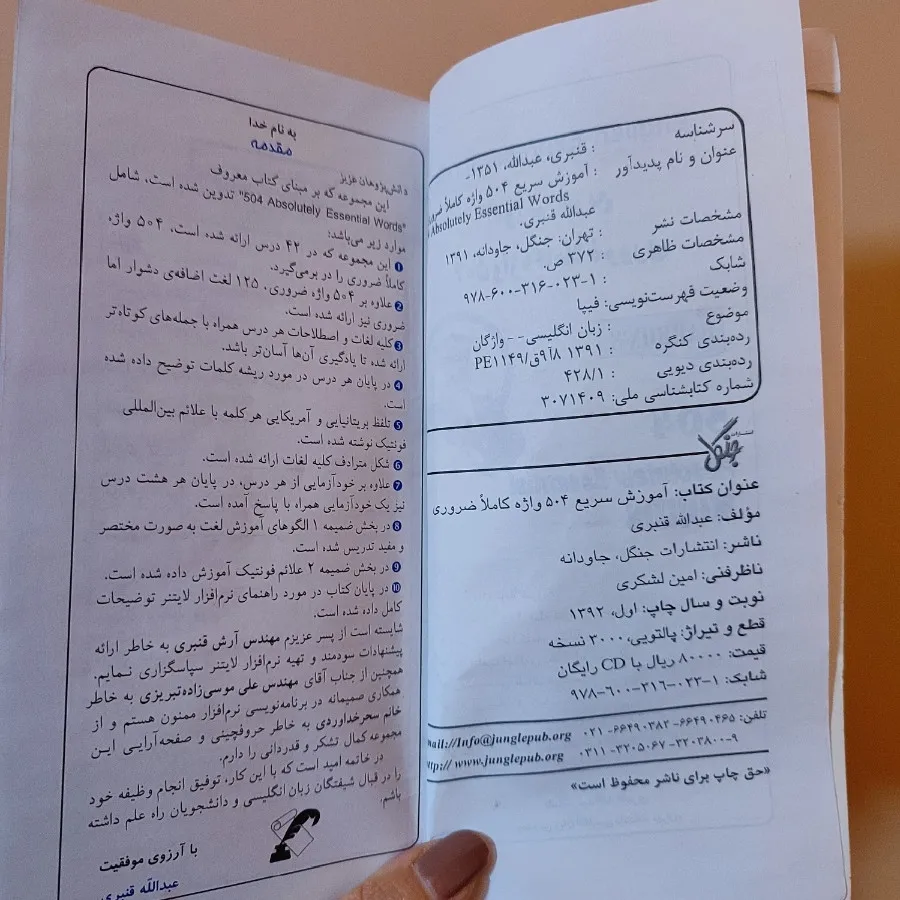 سرشناسه : قنبری، عبدالله، ۱۳۵۱-
عنوان و نام پدیدآور : آموزش سریع ۵۰۴ واژه کاملاً
Absolutely Essential Words
عبدالله قنبری.
مشخصات نشر : تهران: جنگل، جاودانه، ۱۳۹۱
مشخصات ظاهری : ۳۷۲ ص.
شابک : ۹۷۸-۶۰۰-۳۱۶-۰۲۳-۱
وضعیت فهرست‌نویسی: فیپا
موضوع : زبان انگلیسی -- واژگان
رده‌بندی کنگره : ۱۳۹۱ ۸آ۹ق/PE۱۱۴۹
رده‌بندی دیویی : ۴۲۸/۱
شماره کتابشناسی ملی: ۳۰۷۱۴۰۹
انتشارات جنگل
عنوان کتاب: آموزش سریع ۵۰۴ واژه کاملاً ضروری
مؤلف: عبدالله قنبری
ناشر: انتشارات جنگل، جاودانه
ناظرفنی: امین لشکری
نوبت و سال چاپ: اول، ۱۳۹۲
قطع و تیراژ: پالتویی، ۳۰۰۰ نسخه
قیمت: ۸۰۰۰۰ ریال با CD رایگان
شابک: ۹۷۸-۶۰۰-۳۱۶-۰۲۳-۱
تلفن: ۶۶۴۹۰۴۶۵-۶۶۴۹۰۳۸۲ -۰۲۱
۳۲۰۳۸۰۰-۹ -۳۲۰۵۰۶۷ -۰۳۱۱
mail://Info@junglepub.org
http://www.junglepub.org
«حق چاپ برای ناشر محفوظ است»
به نام خدا
مقدمه
دانش‌پژوهان عزیز
این مجموعه که بر مبنای کتاب معروف
"504 Absolutely Essential Words" تدوین شده است، شامل
موارد زیر می‌باشد:
❶ این مجموعه که در ۴۲ درس ارائه شده است، ۵۰۴ واژه
کاملاً ضروری را در برمی‌گیرد.
❷ علاوه بر ۵۰۴ واژه ضروری، ۱۲۵ لغت اضافه‌ی دشوار اما
ضروری نیز ارائه شده است.
❸ کلیه لغات و اصطلاحات هر درس همراه با جمله‌های کوتاه‌تر
ارائه شده تا یادگیری آن‌ها آسان‌تر باشد.
❹ در پایان هر درس در مورد ریشه کلمات توضیح داده شده
است.
❺ تلفظ بریتانیایی و آمریکایی هر کلمه با علائم بین‌المللی
فونتیک نوشته شده است.
❻ شکل مترادف کلیه لغات ارائه شده است.
❼ علاوه بر خودآزمایی از هر درس، در پایان هر هشت درس
نیز یک خودآزمایی همراه با پاسخ آمده است.
❽ در بخش ضمیمه ۱ الگوهای آموزش لغت به صورت مختصر
و مفید تدریس شده است.
❾ در بخش ضمیمه ۲ علائم فونتیک آموزش داده شده است.
❿ در پایان کتاب در مورد راهنمای نرم‌افزار لایتنر توضیحات
کامل داده شده است.
شایسته است از پسر عزیزم مهندس آرش قنبری به خاطر ارائه
پیشنهادات سودمند و تهیه نرم‌افزار لایتنر سپاسگزاری نمایم.
همچنین از جناب آقای مهندس علی موسی‌زاده‌تبریزی به خاطر
همکاری صمیمانه در برنامه‌نویسی نرم‌افزار ممنون هستم و از
خانم سحرخداوردی به خاطر حروفچینی و صفحه‌آرایی این
مجموعه کمال تشکر و قدردانی را دارم.
در خاتمه امید است که با این کار، توفیق انجام وظیفه خود
را در قبال شیفتگان زبان انگلیسی و دانشجویان راه علم داشته
باشم.
با آرزوی موفقیت
عبدالله قنبری